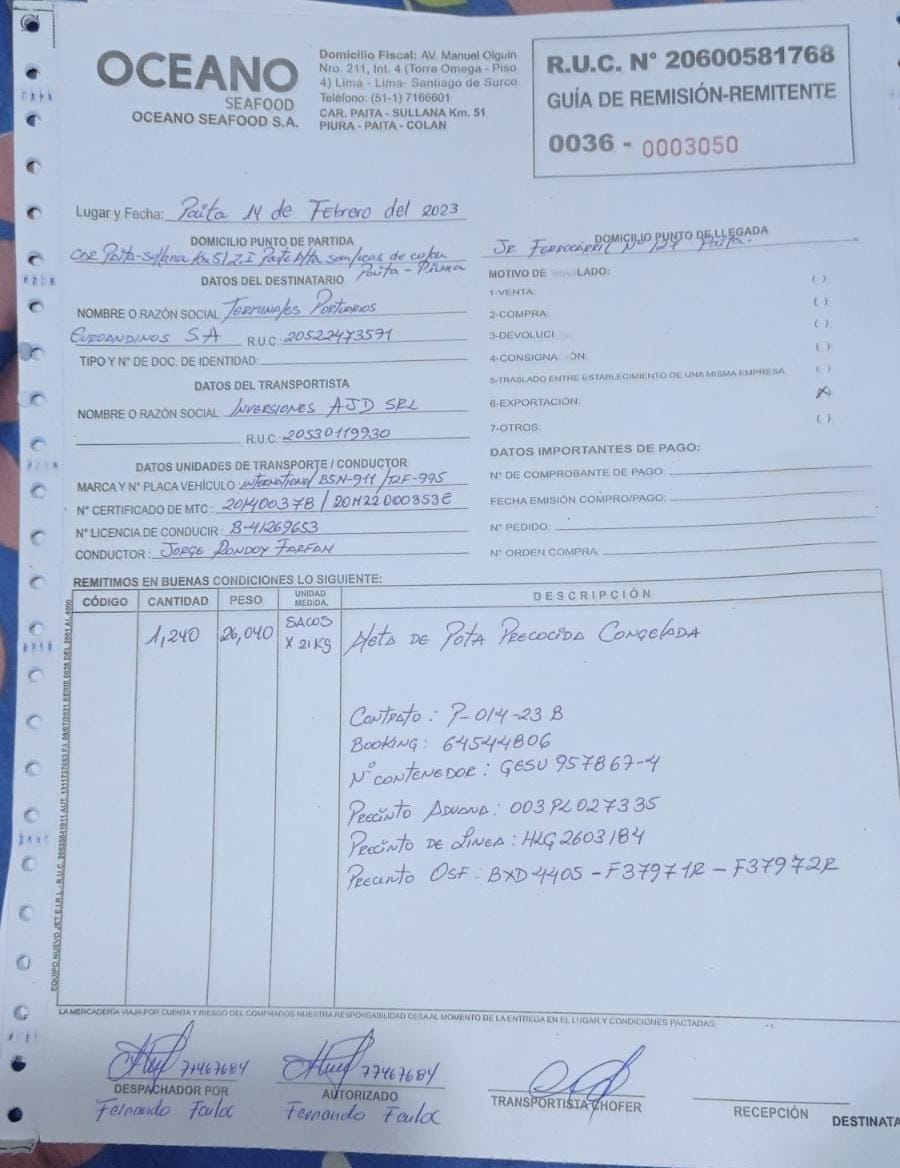 OCEANO
SEAFOOD
OCEANO SEAFOOD S.A.
Domicilio Fiscal: AV. Manuel Olguin
Nro. 211, Int. 4 (Torre Omega - Piso
4) Lima - Lima- Santiago de Surco
Teléfono: (51-1) 7166601
CAR. PAITA - SULLANA Km. 51
PIURA - PAITA - COLAN
R.U.C. N° 20600581768
GUÍA DE REMISIÓN-REMITENTE
0036 - 0003050
Lugar y Fecha: Paita 14 de Febrero del 2023
DOMICILIO PUNTO DE PARTIDA
Car Paita-Sullana Km 51 Z.I Parte Alta san lucas de colan
Paita - Piura
DOMICILIO PUNTO DE LLEGADA
Jr Ferrocarril N° 127 Paita.
DATOS DEL DESTINATARIO
NOMBRE O RAZÓN SOCIAL: Terminales Portuarios
Euroandinos S.A R.U.C.: 20522473571
TIPO Y N° DE DOC. DE IDENTIDAD:
DATOS DEL TRANSPORTISTA
NOMBRE O RAZÓN SOCIAL: Inversiones AJD SRL
R.U.C.: 20530119930
DATOS UNIDADES DE TRANSPORTE / CONDUCTOR
MARCA Y N° PLACA VEHÍCULO: International BSN-911 / T2F-995
N° CERTIFICADO DE MTC: 201400378 / 20M22000353E
N° LICENCIA DE CONDUCIR: B-41269653
CONDUCTOR: Jorge Rondoy Farfan
MOTIVO DE TRASLADO:
1-VENTA: ( )
2-COMPRA: ( )
3-DEVOLUCI ( )
4-CONSIGNA ÓN: ( )
5-TRASLADO ENTRE ESTABLECIMIENTO DE UNA MISMA EMPRESA ( )
6-EXPORTACIÓN: X
7-OTROS: ( )
DATOS IMPORTANTES DE PAGO:
N° DE COMPROBANTE DE PAGO:
FECHA EMISIÓN COMPRO/PAGO:
N° PEDIDO:
N° ORDEN COMPRA:
REMITIMOS EN BUENAS CONDICIONES LO SIGUIENTE:
CÓDIGO CANTIDAD PESO UNIDAD MEDIDA. DESCRIPCIÓN
1,240 26,040 SACOS X 21 KG Aleta de Pota Precocida Congelada
Contrato: P-014-23 B
Booking: 64544806
N° contenedor: GESU 957867-4
Precinto Aduana: 003PL027335
Precinto de Linea: HLG2603184
Precinto OSF: BXD4405 - F37971R - F37972R
EQUIPO NUEVO JET E.I.R.L.
LA MERCADERÍA VIAJA POR CUENTA Y RIESGO DEL COMPRADOS NUESTRA RESPONSABILIDAD CESA AL MOMENTO DE LA ENTREGA EN EL LUGAR Y CONDICIONES PACTADAS
77467684
DESPACHADOR POR
Fernando
77467684
AUTORIZADO
Fernando
TRANSPORTISTA CHOFER
RECEPCIÓN
DESTINATA